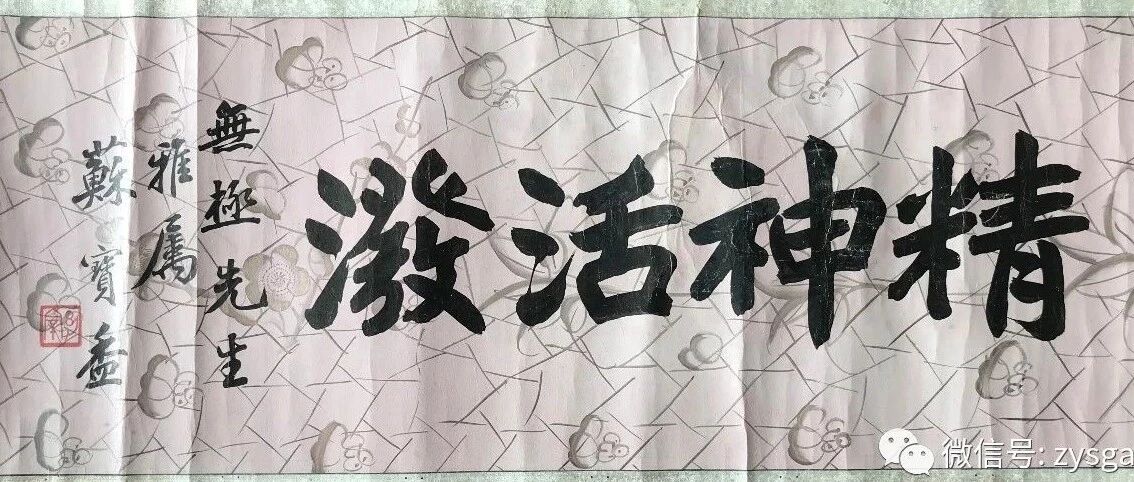 精神活潑
無極先生
雅属
蘇寶盉
微信号: zysga